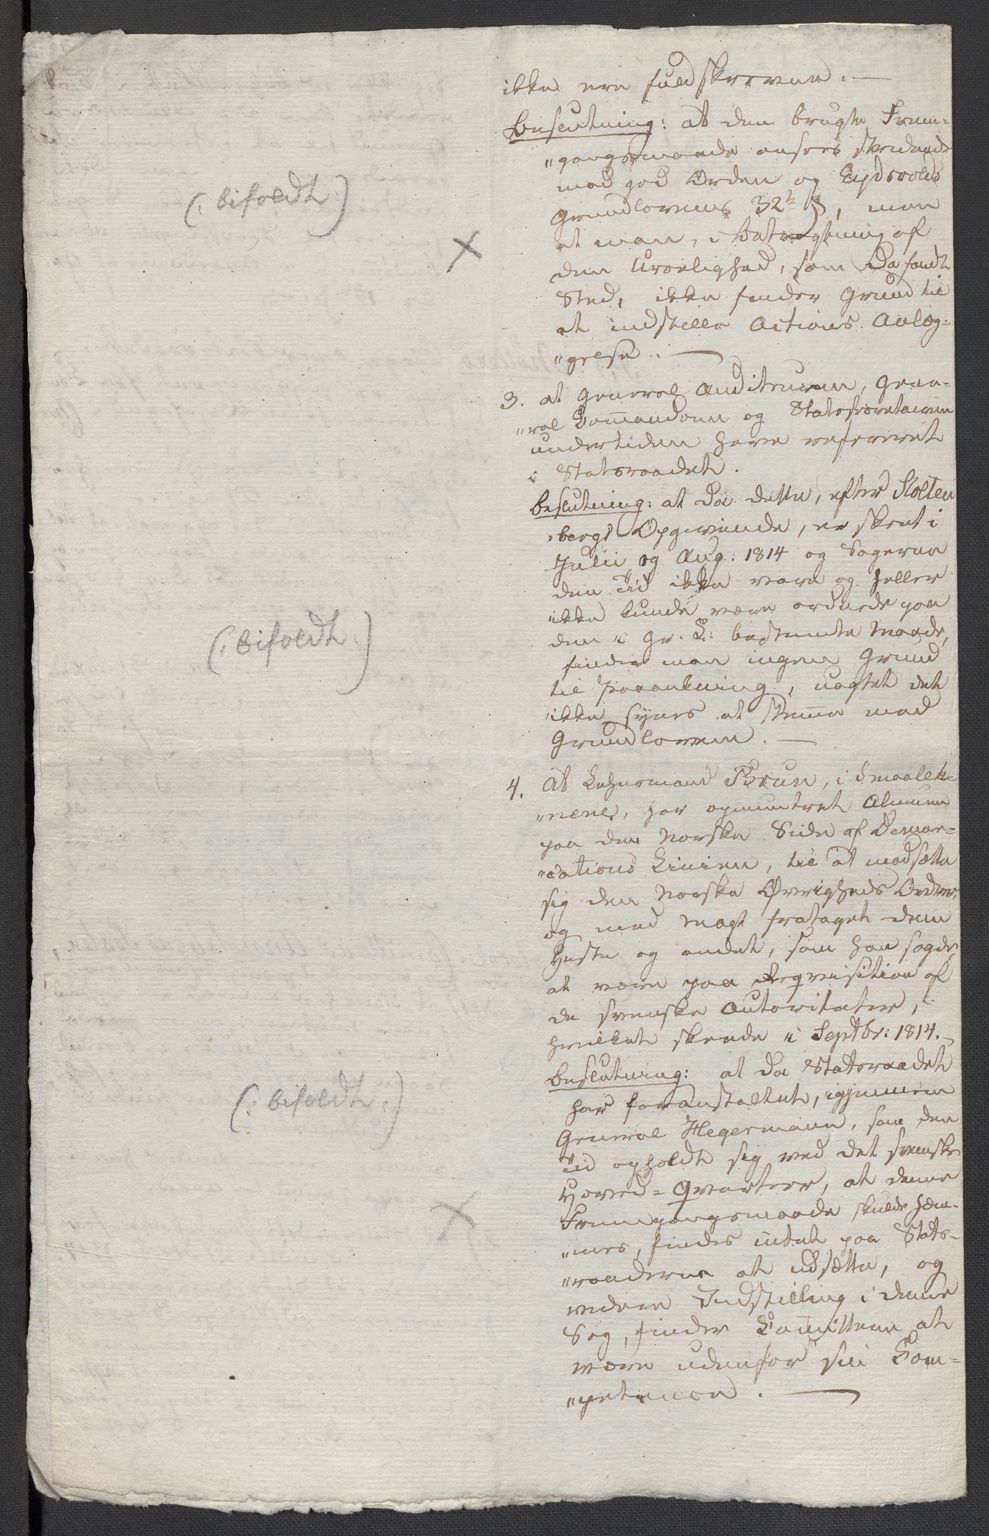 ikke ere fuldskrevne. —
Beslutning: at den brugte Frem-
"gangsmaade ansees stridende
mod god Orden og Eydsvolds
Grundlovens 32te §, men
at man, i Betragtning af
den Uroelighed, som da fandt
Sted, ikke finder Grund til
at indstille Actions Anlæg-
"gelse. —
(: bifaldt)
3. at General Auditeuren, Gene-
"ral Com̄andoen og Statssecretairen
undertiden have refereret
i Statsraadet.
Beslutning: at da dette, efter Stolten
"bergs Opgivende, er skeet i
Julii og Aug: 1814 og Sagerne
den Tid ikke vare og heller
ikke kunde være ordnede paa
den i Gr. L: bestemte Maade,
finder man ingen Grund
til Paaankning, uagtet det
ikke synes at stem̄e med
Grundloven. —
(: bifaldt.)
4. At Lehnsmand Brun, i Smaaleh-
"nene, har opmuntret Almuen
paa den Norske Side af Demar-
"cations Linien, til at modsætte
sig den Norske Øvrigheds Ordrer,
og med Magt frataget dem
Heste og andet, som han sagde
at være paa Reqvisition af
de svenske Autoriteter,
hvilket skeede i Septbr: 1814. -
Beslutning: at da Statsraadet
har foranstaltet, igjennem
General Hegermann, som den
Tid opholdt sig ved det svenske
Hoved-Qvarteer, at denne
Fremgangsmaade skulde hæm-
"mes, findes intet paa Stats-
"raaderne at udsætte, og
videre Indstilling i denne
Sag, finder Com̄itteen at
være udenfor sin Com-
"petence. —
(: bifaldt.:)